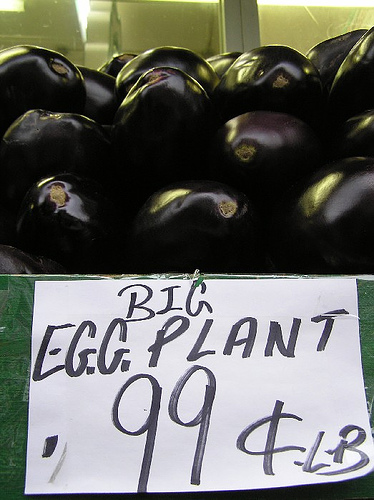 BIG
E.G.G. PLANT
.99 ¢ LB